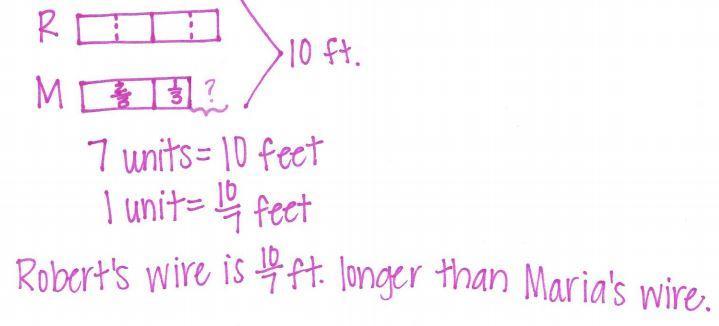 R
10 ft.
M 2/3 1/3 ?
7 units= 10 feet
1 unit= 10/7 feet
Robert's wire is 10/7 ft. longer than Maria's wire.